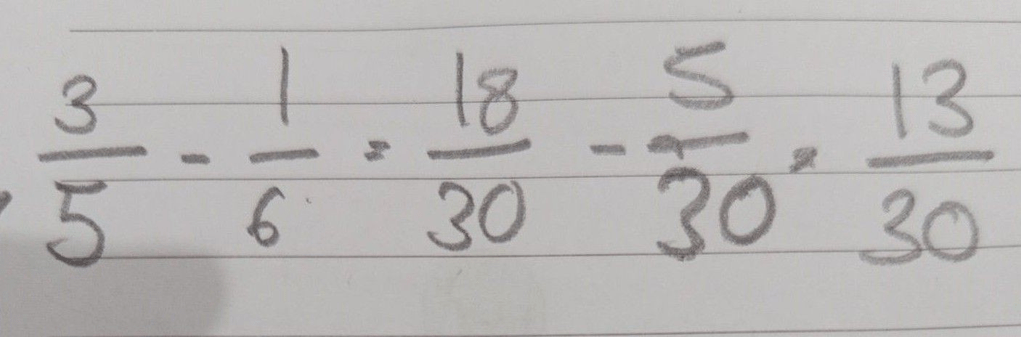 3/5 - 1/6 = 18/30 - 5/30 = 13/30